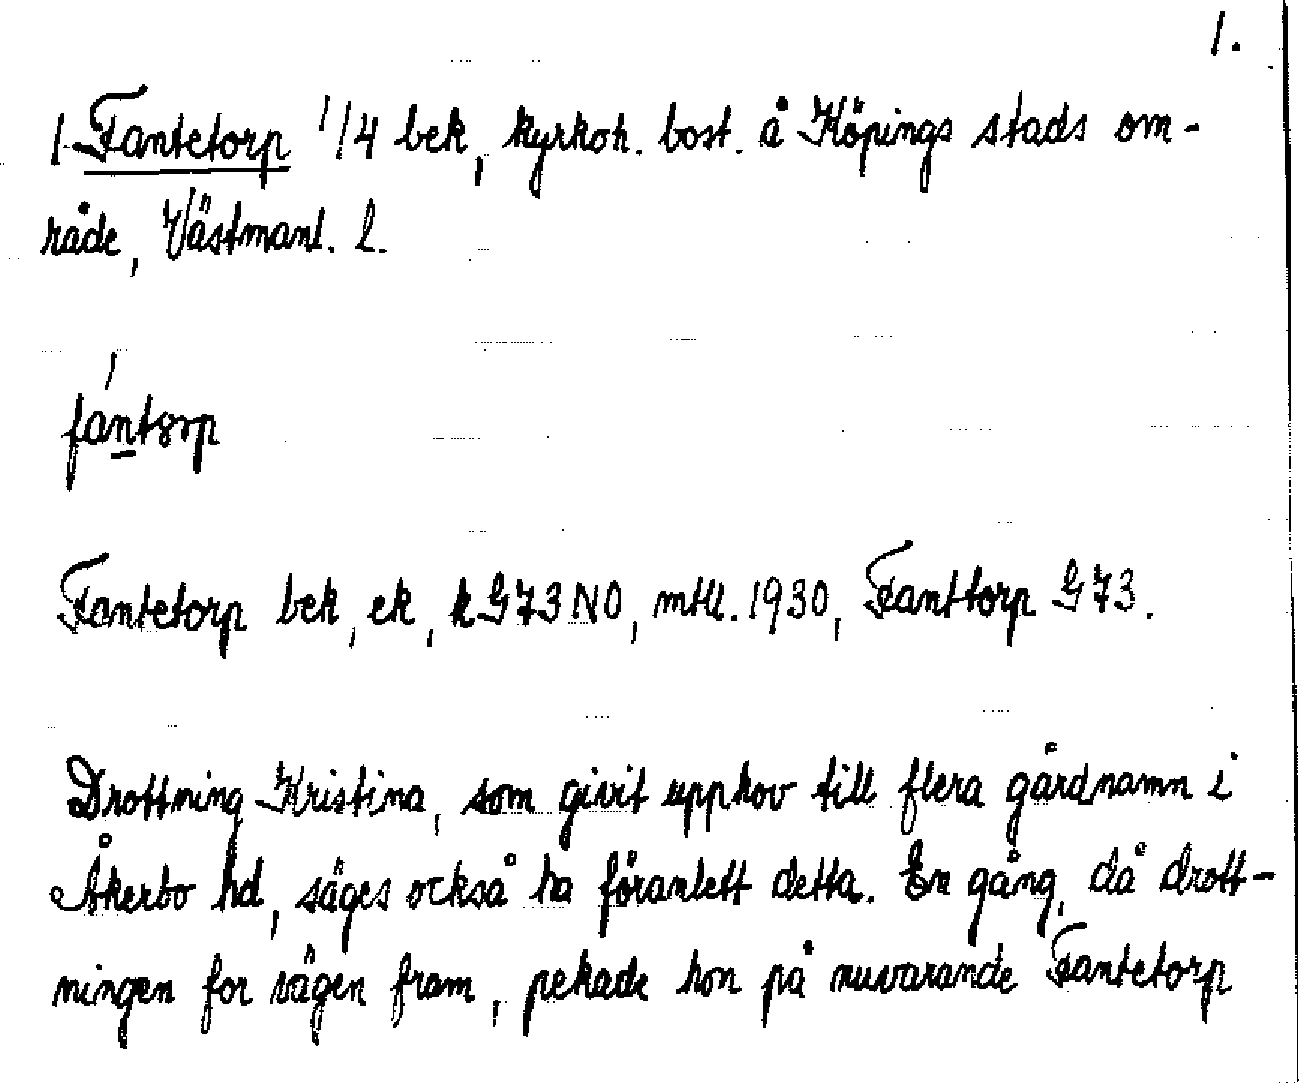 1.
1. Fantetorp 1/4 bek, kyrkoh. bost. å Köpings stads om-
råde, Västmanl. l.
fántorp
Fantetorp bek, ek, k G73 NO, mtll. 1930, Fanttorp G73.
Drottning Kristina, som givit upphov till flera gårdnamn i
Åkerbo hd, säges också ha föranlett detta. En gång, då drott-
ningen for vägen fram, pekade hon på nuvarande Fantetorp